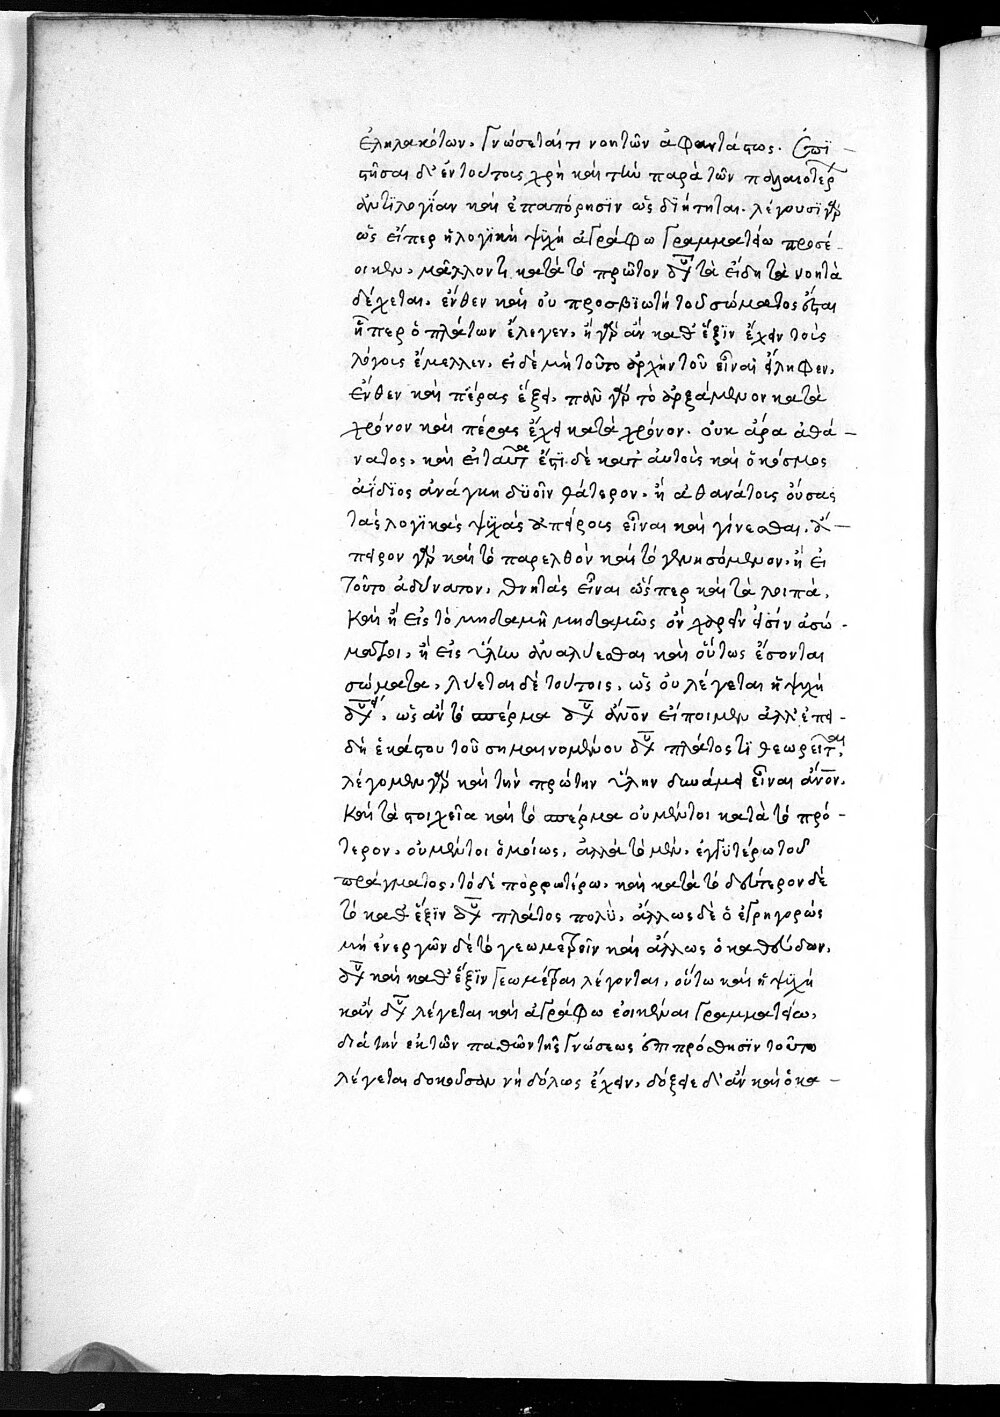 ἐληλακότων. γνώσεταί τι νοητῶν ἀφαντάστως. ἐπι-
στῆσαι δ' ἐν τούτοις χρὴ καὶ τὴν παρὰ τῶν παλαιοτέρ
ἀντιλογίαν καὶ ἐπαπόρησιν ὡς διήτηται. λέγουσι γὰρ
ὡς εἴπερ ἡ λογικὴ ψυχὴ ἀγράφω γραμματείω προσέ-
οικεν, μᾶλλον τι κατὰ τὸ πρῶτον δυ τὰ εἴδη τὰ νοητὰ
δέχεται. ἔνθεν καὶ οὐ προσβιωτὴ τοῦ σώματος ἔσται
ἥπερ ὁ πλάτων ἔλεγεν. ἢ γὰρ ἂν καθ' ἕξιν ἔχειν τοὺς
λόγοις ἔμελλεν. εἰ δὲ μὴ τοῦτο ἀρχὴν τοῦ εἶναι εἴληφεν.
ἔνθεν καὶ πέρας ἕξει. πᾶν γὰρ τὸ ἀρξάμενον κατὰ
χρόνον καὶ πέρας ἔχει κατὰ χρόνον. οὐκ ἄρα ἀθά-
νατος. καὶ εἰ ταῦτα ἔστι δὲ κατ' αὐτοὺς καὶ ὁ κόσμος
ἀΐδιος ἀνάγκη δυοῖν θάτερον. ἢ ἀθανάτοις οὔσας
τὰς λογικὰς ψυχὰς ἀπείροις εἶναι καὶ γίνεσθαι. ἄ-
πειρον γὰρ καὶ τὸ παρελθὸν καὶ τὸ γενησόμενον. ἢ εἰ
τοῦτο ἀδύνατον, θνητὰς εἶναι ὥσπερ καὶ τὰ λοιπὰ.
καὶ ἢ εἰς τὸ μηδαμῆ μηδαμῶς ὂν χωρεῖν εἰσὶν ἀσώ-
ματοι, ἢ εἰς ὕλην ἀναλύεσθαι καὶ οὕτως ἔσονται
σώματα. λύεται δὲ τούτοις, ὡς οὐ λέγεται ἡ ψυχὴ
δυ, ὡς ἂν τὸ σπέρμα δυ ἄνον εἴποιμεν ἀλλ' ἐπει-
δὴ ἑκάστου τοῦ σημαινομένου δυ πλάτος τι θεωρεῖται.
λέγομεν γὰρ καὶ τὴν πρώτην ὕλην δυνάμει εἶναι ἄνον.
καὶ τὰ στοιχεῖα καὶ τὸ σπέρμα οὐ μέντοι κατὰ τὸ πρό-
τερον. οὐ μέντοι ὁμοίως. ἀλλὰ τὸ μὲν, ἐγγυτέρω τοῦ
πράγματος, τὸ δὲ πορρωτέρω. καὶ κατὰ τὸ δεύτερον δὲ
τὸ καθ' ἕξιν δυ πλάτος πολὺ, ἄλλως δὲ ὁ ἐγρηγορὼς
μὴ ἐνεργῶν δὲ τὸ γεωμετρεῖν καὶ ἄλλως ὁ καθεύδων.
δυ καὶ καθ' ἕξιν γεωμέτραι λέγονται. οὕτω καὶ ἡ ψυχὴ
κἂν δυ λέγεται καὶ ἀγράφω ἐοικέναι γραμματείω,
διὰ τὴν ἐκ τῶν παθῶν τῆς γνώσεως ἐπιπρόσθησιν τοῦτο
λέγεται δοκοῦσαν μὴ δόλως ἔχειν. δόξειε δ' ἂν καὶ ὁ κα-